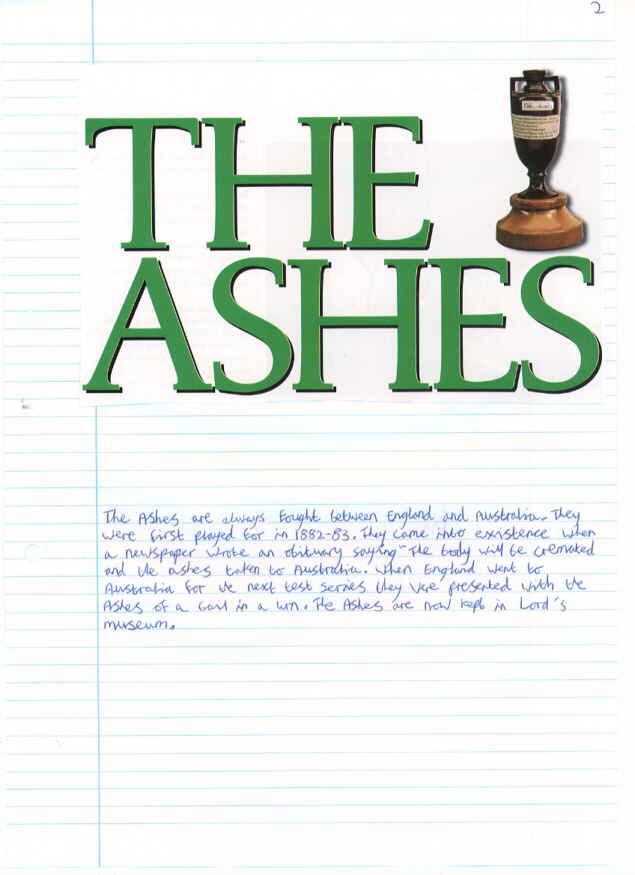 2
THE
ASHES
The Ashes are always fought between England and Australia. They
were first played for in 1882-83. They came into exxistence when
a newspaper wrote an obituary saying "The body will be cremated
and the ashes taken to Australia. When England went to
Australia for the next test series they were presented with the
Ashes of a in a urn. The Ashes are now kept in Lord's
museum.